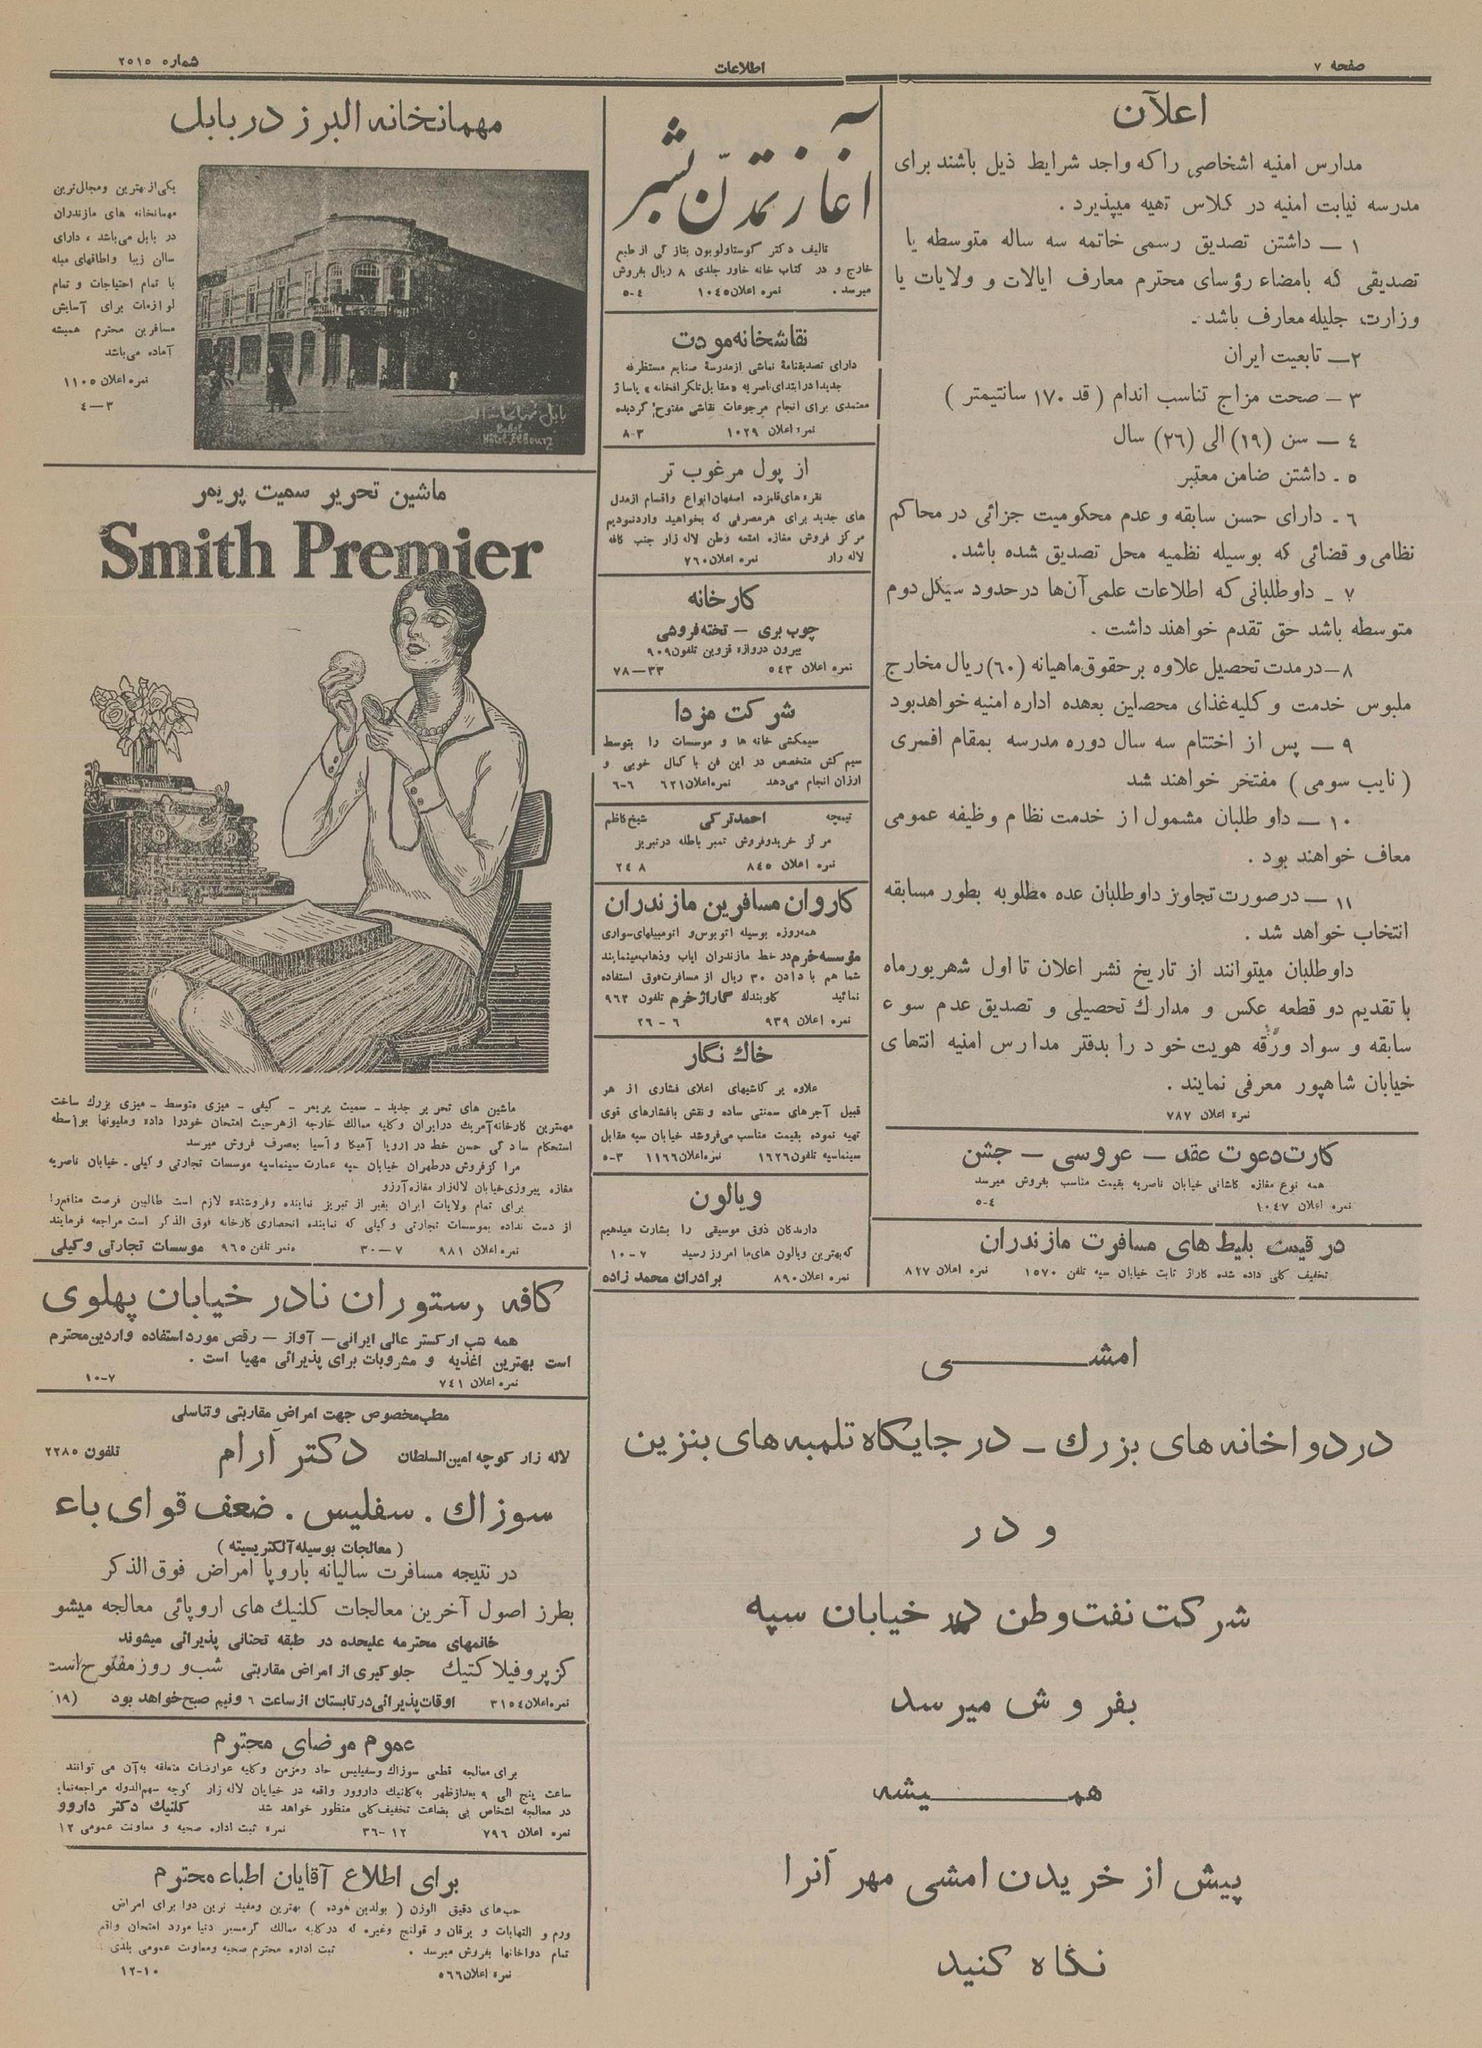 صفحه ۷
اطلاعات
شماره ۲۰۱۵
اعلان
مدارس امنیه اشخاصی را که واجد شرایط ذیل باشند برای
مدرسه نیابت امنیه در کلاس تهیه میپذیرد .
۱ – داشتن تصدیق رسمی خاتمه سه ساله متوسطه یا
تصدیقی که بامضاء رؤسای محترم معارف ایالات و ولایات یا
وزارت جلیله معارف باشد .
۲ – تابعیت ایران
۳ – صحت مزاج تناسب اندام ( قد ۱۷۰ سانتیمتر )
٤ – سن (۱۹) الی (۲٦) سال
۵ . داشتن ضامن معتبر
٦ . دارای حسن سابقه و عدم محکومیت جزائی در محاکم
نظامی و قضائی که بوسیله نظمیه محل تصدیق شده باشد .
۷ – داوطلبانی که اطلاعات علمی آن‌ها در حدود سیکل دوم
متوسطه باشد حق تقدم خواهند داشت .
۸ – در مدت تحصیل علاوه بر حقوق ماهیانه (٦۰) ریال مخارج
ملبوس خدمت و کلیه غذای محصلین بعهده اداره امنیه خواهد بود
۹ – پس از اختتام سه سال دوره مدرسه بمقام افسری
( نایب سومی ) مفتخر خواهند شد
۱۰ – داوطلبان مشمول از خدمت نظام وظیفه عمومی
معاف خواهند بود .
۱۱ – در صورت تجاوز داوطلبان عده مطلوبه بطور مسابقه
انتخاب خواهد شد .
داوطلبان میتوانند از تاریخ نشر اعلان تا اول شهریور ماه
با تقدیم دو قطعه عکس و مدارك تحصیلی و تصدیق عدم سوء
سابقه و سواد ورقه هویت خود را بدفتر مدارس امنیه انتهای
خیابان شاهپور معرفی نمایند .
نمره اعلان ۷۸۷
کارت دعوت عقد – عروسی – جشن
همه نوع مغازه کاشانی خیابان ناصریه بقیمت مناسب بفروش میرسد
نمره اعلان ۱۰٤۷ ٤-۵
در قیمت بلیط های مسافرت مازندران
تخفیف کلی داده شده گاراژ ثابت خیابان سپه تلفن ۱۵۷۰ نمره اعلان ۸۲۷
آغاز تمدن بشر
تالیف دکتر گوستاولوبون بتازگی از طبع
خارج و در کتاب خانه خاور جلدی ۸ ریال بفروش
میرسد . نمره اعلان ۱۰٤۵ ٤-۵
نقاشخانه مودت
دارای تصدیقنامهٔ نقاشی از مدرسهٔ صنایع مستظرفه
جدیدا در ابتدای ناصریه «مقابل تلگرافخانه»
معتمدی برای انجام مرجوعات نقاشی مفتوح گردیده
نمره اعلان ۱۰۲۹ ۳-۸
از پول مرغوب تر
نقره های قلمزده اصفهان انواع واقسام از مدل
های جدید برای هر مصرفی که بخواهید وارد نمودیم
مرکز فروش مغازه امتعه وطن لاله زار جنب کافه
لاله زار نمره اعلان ۷٦۰
کارخانه
چوب بری – تخته فروشی
بیرون دروازه قزوین تلفون ۹۰۹
نمره اعلان ۵٤۳ ۳۳—۷۸
شرکت مزدا
سیمکشی خانه ها و موسسات را بتوسط
سیم کش متخصص در این فن با کمال خوبی و
ارزان انجام میدهد نمره اعلان ٦۲۱ ٦-٦
تیمچه احمد ترکی شیخ کاظم
مرکز خرید و فروش تمبر باطله در تبریز
نمره اعلان ۸٤۵ ۲٤۸
کاروان مسافرین مازندران
همه روزه بوسیله اتوبوس و اتومبیلهای سواری
مؤسسه خرم در خط مازندران ایاب و ذهاب مینمایند
شما هم با دادن ۳۰ ریال از مسافرت فوق استفاده
نمائید گاراژ خرم تلفون ۹٦۲
نمره اعلان ۹۳۹ ٦ – ۲٦
خاك نگار
علاوه بر کاشیهای اعلای فشاری از هر
قبیل آجرهای سمنتی ساده و نقش با فشارهای قوی
تهیه نموده بقیمت مناسب می‌فروشد خیابان سپه مقابل
سینماسپه تلفون ۱٦۲٦ نمره اعلان ۱۱٦٦ ۳-۵
ویالون
دارندگان ذوق موسیقی را بشارت میدهیم
که بهترین ویالون های ما امروز رسید ۷-۱۰
نمره اعلان ۸۹۰ برادران محمد زاده
امشی
در دواخانه های بزرك – در جایگاه تلمبه های بنزین
و در
شرکت نفت وطن در خیابان سپه
بفروش میرسد
همیشه
پیش از خریدن امشی مهر آنرا
نگاه کنید
مهمانخانه البرز در بابل
یکی از بهترین و مجلل ترین
مهمانخانه های مازندران
در بابل می‌باشد ، دارای
سالن زیبا و اطاقهای مبله
با تمام احتیاجات و تمام
لوازمات برای آسایش
مسافرین محترم همیشه
آماده می‌باشد
نمره اعلان ۱۱۰۵
۳—٤
Babol
Hôtel Elbourz
ماشین تحریر سمیت پریمر
Smith Premier
Smith Premier
ماشین های تحریر جدید – سمیت پریمر – کیفی – میزی متوسط – میزی بزرك ساخت
مهمترین کارخانه آمریك در ایران و کلیه ممالك خارجه از هر حیث امتحان خود را داده و ملیونها بواسطه
استحکام سادگی حسن خط در اروپا آمریکا و آسیا بمصرف فروش میرسد
مراکز فروش در طهران خیابان سپه عمارت سینماسپه موسسات تجارتی وکیلی . خیابان ناصریه
مغازه پیروزی خیابان لاله زار مغازه آرزو
برای تمام ولایات ایران بغیر از تبریز نماینده و فروشنده لازم است طالبین فرصت منافع را
از دست نداده بموسسات تجارتی وکیلی که نماینده انحصاری کارخانه فوق الذکر است مراجعه فرمایند
نمره اعلان ۹۸۱ ۷—۳۰ نمره تلفن ۹٦۵ موسسات تجارتی وکیلی
کافه رستوران نادر خیابان پهلوی
همه شب ارکستر عالی ایرانی – آواز – رقص مورد استفاده واردین محترم
است بهترین اغذیه و مشروبات برای پذیرائی مهیا است .
نمره اعلان ۷٤۱ ۷–۱۰
مطب مخصوص جهت امراض مقاربتی و تناسلی
لاله زار کوچه امین السلطان دکتر آرام تلفون ۲۲۸۵
سوزاك . سفلیس . ضعف قوای باء
( معالجات بوسیله آلکتریسیته )
در نتیجه مسافرت سالیانه باروپا امراض فوق الذکر
بطرز اصول آخرین معالجات کلنیك های اروپائی معالجه میشو
خانمهای محترمه علیحده در طبقه تحتانی پذیرائی میشوند
کزپروفیلاکتیك جلوگیری از امراض مقاربتی شب و روز مفتوح است
نمره اعلان ۳۱۵٤ اوقات پذیرائی در تابستان از ساعت ٦ ونیم صبح خواهد بود (۱۹
عموم مرضای محترم
برای معالجه قطعی سوزاك وسفیلیس حاد ومزمن وکلیه عوارضات متعلقه به‌آن می توانند
ساعت پنج الی ۹ بعد از ظهر به کلنیك داروو واقعه در خیابان لاله زار کوچه سهم الدوله مراجعه نمایند
در معالجه اشخاص بی بضاعت تخفیف کلی منظور خواهد شد کلنیك دکتر داروو
نمره اعلان ۷۹٦ ۱۲–۳٦ نمره ثبت اداره صحیه و معاونت عمومی ۱۲
برای اطلاع آقایان اطباء محترم
حب‌های دقیق الوزن ( بولدین هوده ) بهترین و مفید ترین دوا برای امراض
ورم و التهابات و یرقان و قولنج وغیره که در کلیه ممالك گرمسیر دنیا مورد امتحان واقع
تمام دواخانها بفروش میرسد . ثبت اداره محترم صحیه ومعاونت عمومی بلدی
نمره اعلان ۵٦٦ ۱۰–۱۲